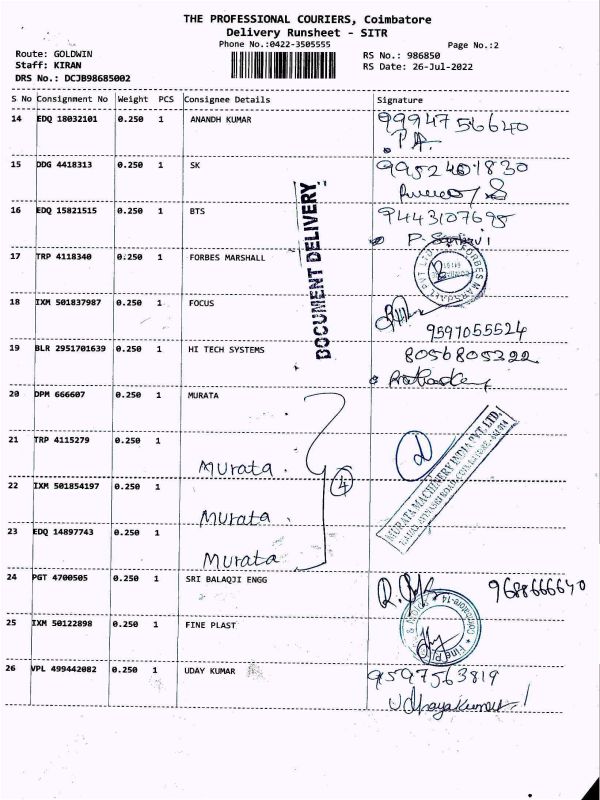 THE PROFESSIONAL COURIERS, Coimbatore
Delivery Runsheet - SITR
Phone No.:0422-3505555
Page No.:2
Route: GOLDWIN
RS No.: 986850
Staff: KIRAN
RS Date: 26-Jul-2022
DRS No.: DCJB98685002
S No Consignment No Weight PCS Consignee Details Signature
14 EDQ 18032101 0.250 1 ANANDH KUMAR 9994756640
P.A
15 DDG 4418313 0.250 1 SK 9952401830
16 EDQ 15821515 0.250 1 BTS 9443107695
DOCUMENT DELIVERY
17 TRP 4118340 0.250 1 FORBES MARSHALL
FORBES MARSHALL PVT LTD
18 IXM 501837987 0.250 1 FOCUS
9597055524
19 BLR 2951701639 0.250 1 HI TECH SYSTEMS 8056805322
20 DPM 666607 0.250 1 MURATA
21 TRP 4115279 0.250 1
Murata.
4
MURATA MACHINERY INDIA PVT. LTD.
22 IXM 501854197 0.250 1
Murata.
23 EDQ 14897743 0.250 1
Murata
24 PGT 4700505 0.250 1 SRI BALAQJI ENGG 9688666640
25 IXM 50122898 0.250 1 FINE PLAST
26 VPL 499442082 0.250 1 UDAY KUMAR 9597563819
Udhayakumar